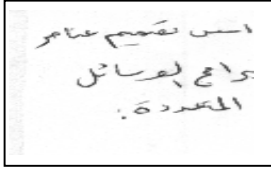 اسس تصميم عناصر
برامج الوسائل
المتعددة: